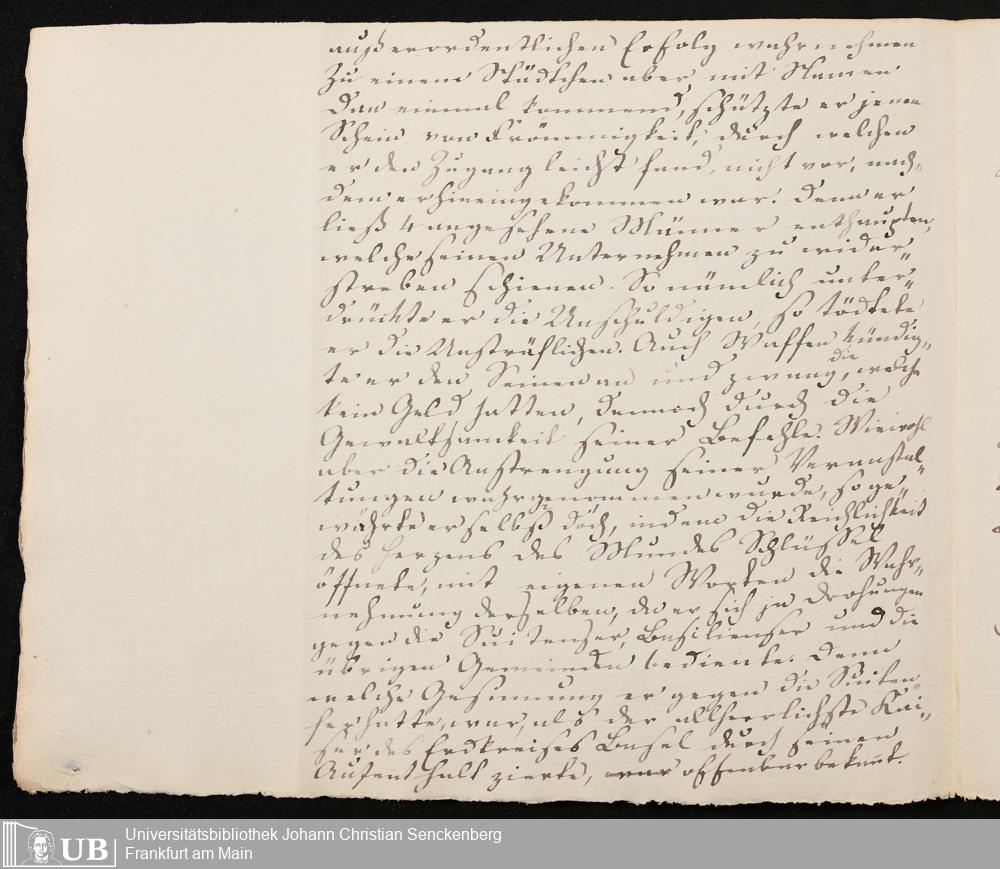 außerordentlichen Erfolg wahrnehmen
Zu einem Städtchen aber mit Namen
Dan einmal kommend, schützte er jenen
Schein von Frömmigkeit, durch welchen
er den Zugang leicht fand, nicht vor, nach„
dem er hineingekommen war. Denn er
ließ 4 angesehene Männer enthaupten,
welche seinen Unternehmen zu wider„
streben schienen. So nämlich unter„
drückte er die Unschuldigen, so tödtete
er die Unsträflichen. Auch Waffen kündig„
te er den Seinen an und zwang, die welche
kein Geld hatten, dennoch durch die
Gewaltsamkeit seiner Befehle. Wiewohl
aber die Anstrengung seiner Veranstal„
tungen wahrgenommen wurde, so ge„
währte er selbst doch, indem die Reichlichkeit
des Herzens des Mundes Schlüssel
öffnete, mit eigenen Worten die Wahr„
nehmung derselben, da er sich ja Drohungen
gegen die Suitenser, Basilienser und die
übrigen Gemeinden bediente. Denn
welche Gesinnung er gegen die Suiten„
ser hatte, war, als der allherrlichste Kai„
ser des Erdkreises Basel durch seinen
Aufenthalt zierte, offenbar bekannt.
UB
Universitätsbibliothek Johann Christian Senckenberg
Frankfurt am Main